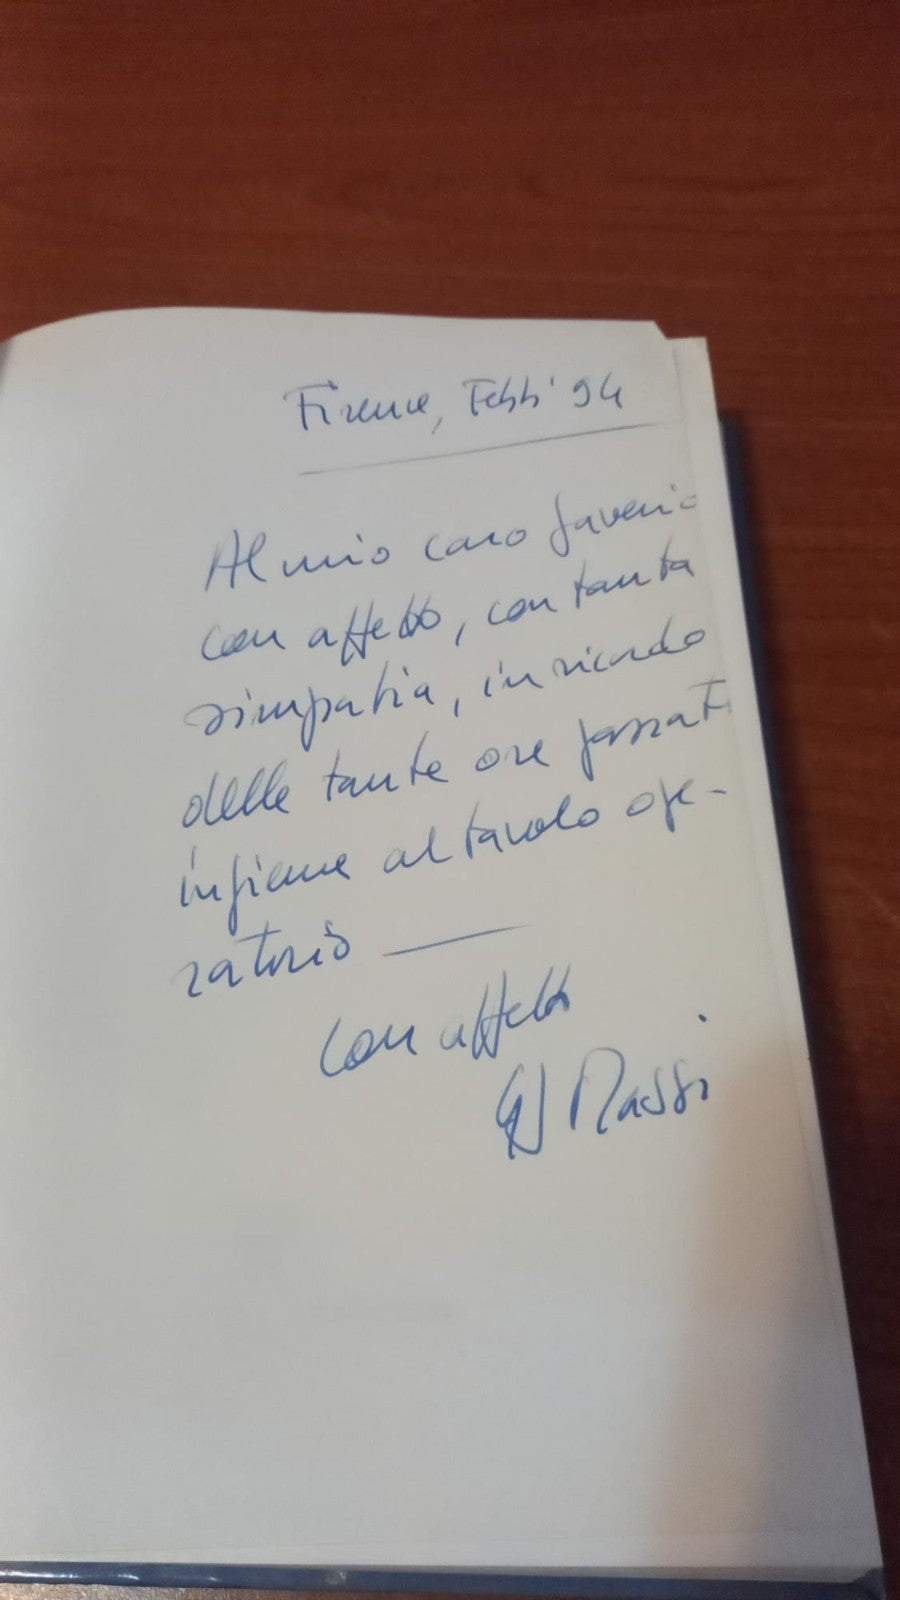 Firenze, Febb' 94
Al mio caro Saverio
con affetto, con tanta
simpatia, in ricordo
delle tante ore passate
insieme al tavolo ope-
ratorio
Con affetto
Massi